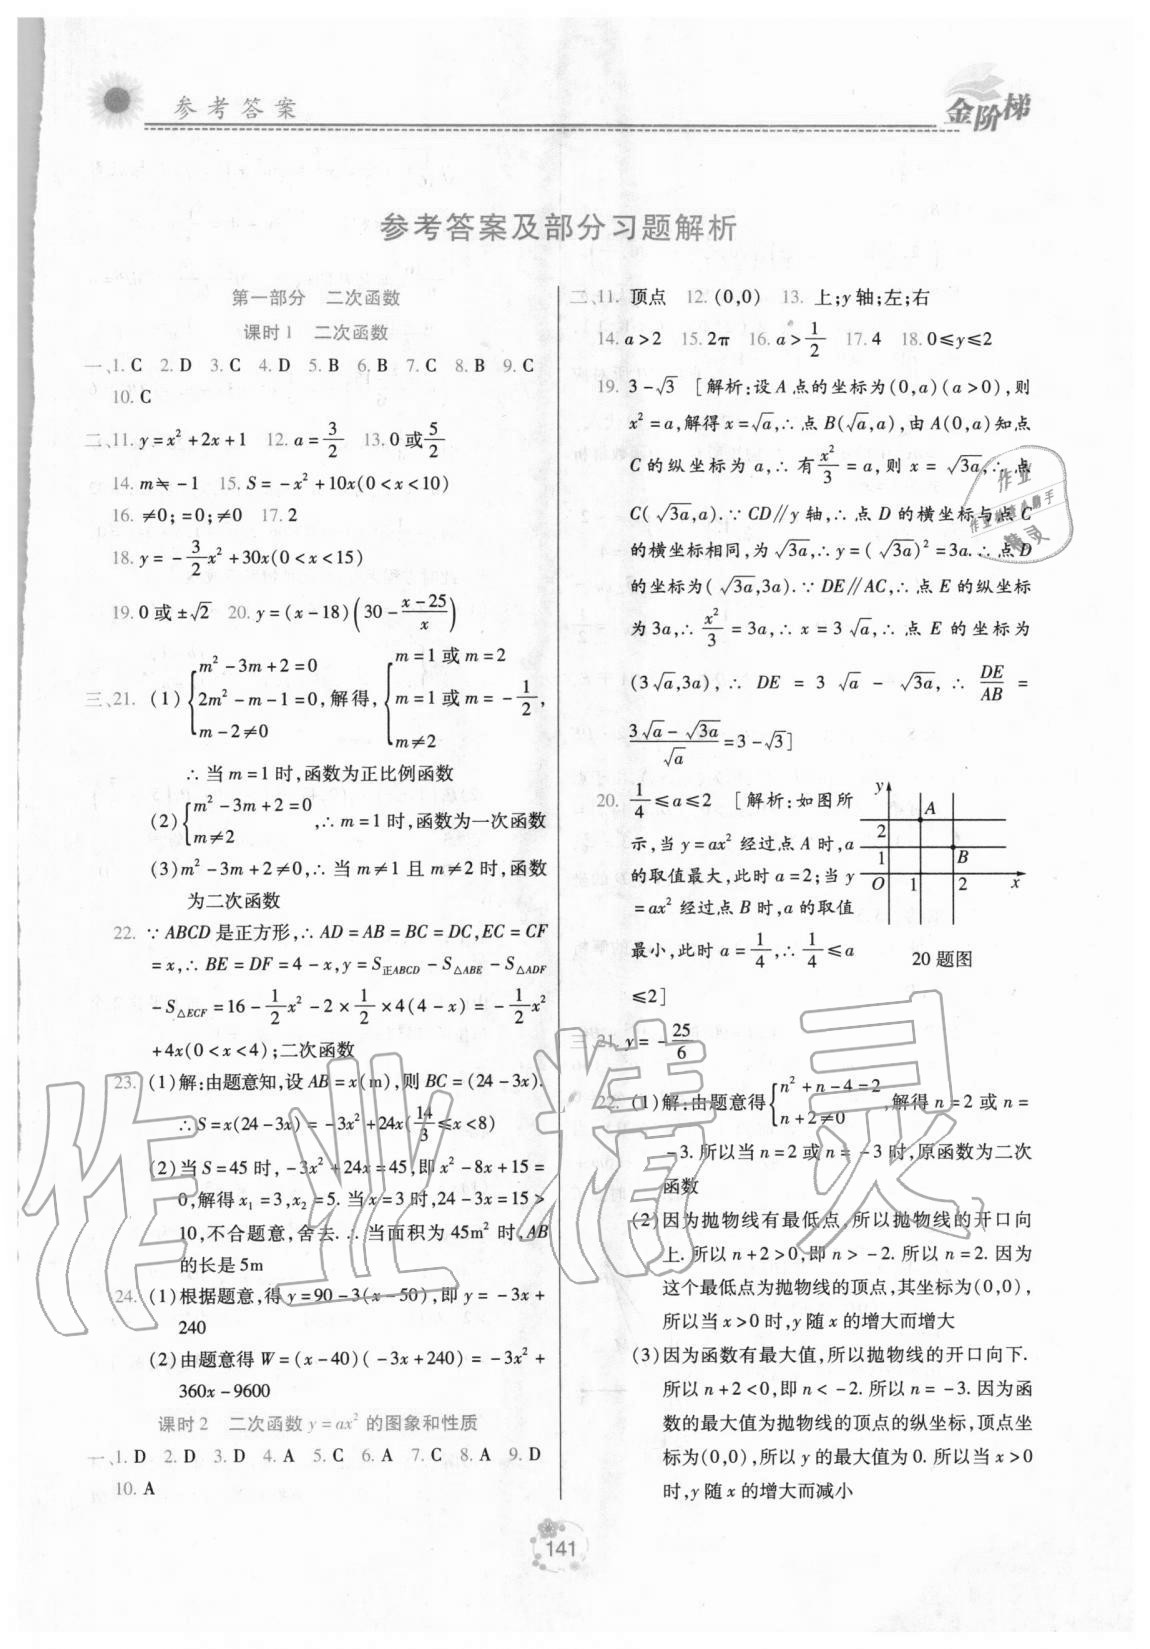 参考答案
金阶梯
参考答案及部分习题解析
第一部分 二次函数
课时1 二次函数
一、1. C 2. D 3. C 4. D 5. B 6. B 7. C 8. B 9. C
10. C
二、11. y=x²+2x+1 12. a=3/2 13. 0或5/2
14. m≒-1 15. S=-x²+10x(0<x<10)
16. ≠0;=0;≠0 17. 2
18. y=-3/2x²+30x(0<x<15)
19. 0或±√2 20. y=(x-18)(30-(x-25)/x)
三、21. (1){m²-3m+2=0 2m²-m-1=0 m-2≠0,解得,{m=1或m=2 m=1或m=-1/2 m≠2,
∴当m=1时,函数为正比例函数
(2){m²-3m+2=0 m≠2,∴m=1时,函数为一次函数
(3)m²-3m+2≠0,∴当m≠1且m≠2时,函数
为二次函数
22. ∵ABCD是正方形,∴AD=AB=BC=DC,EC=CF
=x,∴BE=DF=4-x,y=S正ABCD-S△ABE-S△ADF
-S△ECF=16-1/2x²-2×1/2×4(4-x)=-1/2x²
+4x(0<x<4);二次函数
23. (1)解:由题意知,设AB=x(m),则BC=(24-3x).
∴S=x(24-3x)=-3x²+24x(14/3≤x<8)
(2)当S=45时,-3x²+24x=45,即x²-8x+15=
0,解得x₁=3,x₂=5.当x=3时,24-3x=15>
10,不合题意,舍去.∴当面积为45m²时,AB
的长是5m
24. (1)根据题意,得y=90-3(x-50),即y=-3x+
240
(2)由题意得W=(x-40)(-3x+240)=-3x²+
360x-9600
课时2 二次函数y=ax²的图象和性质
一、1. D 2. D 3. D 4. A 5. C 6. A 7. C 8. A 9. D
10. A
二、11. 顶点 12. (0,0) 13. 上;y轴;左;右
14. a>2 15. 2π 16. a>1/2 17. 4 18. 0≤y≤2
19. 3-√3 [解析:设A点的坐标为(0,a)(a>0),则
x²=a,解得x=√a,∴点B(√a,a),由A(0,a)知点
C的纵坐标为a,∴有x²/3=a,则x=√3a,∴点
C(√3a,a).∵CD∥y轴,∴点D的横坐标与点C
的横坐标相同,为√3a,∴y=(√3a)²=3a.∴点D
的坐标为(√3a,3a).∵DE∥AC,∴点E的纵坐标
为3a,∴x²/3=3a,∴x=3√a,∴点E的坐标为
(3√a,3a),∴DE=3√a-√3a,∴DE/AB=
(3√a-√3a)/√a=3-√3]
20. 1/4≤a≤2 [解析:如图所
示,当y=ax²经过点A时,a
的取值最大,此时a=2;当y
=ax²经过点B时,a的取值
最小,此时a=1/4,∴1/4≤a
≤2]
y
A
2
1
B
O 1 2 x
20题图
三、21. y=-25/6
22. (1)解:由题意得{n²+n-4=2 n+2≠0,解得n=2或n=
-3.所以当n=2或n=-3时,原函数为二次
函数
(2)因为抛物线有最低点,所以抛物线的开口向
上.所以n+2>0,即n>-2.所以n=2.因为
这个最低点为抛物线的顶点,其坐标为(0,0),
所以当x>0时,y随x的增大而增大
(3)因为函数有最大值,所以抛物线的开口向下.
所以n+2<0,即n<-2.所以n=-3.因为函
数的最大值为抛物线的顶点的纵坐标,顶点坐
标为(0,0),所以y的最大值为0.所以当x>0
时,y随x的增大而减小
作业精灵
作业
精灵
141